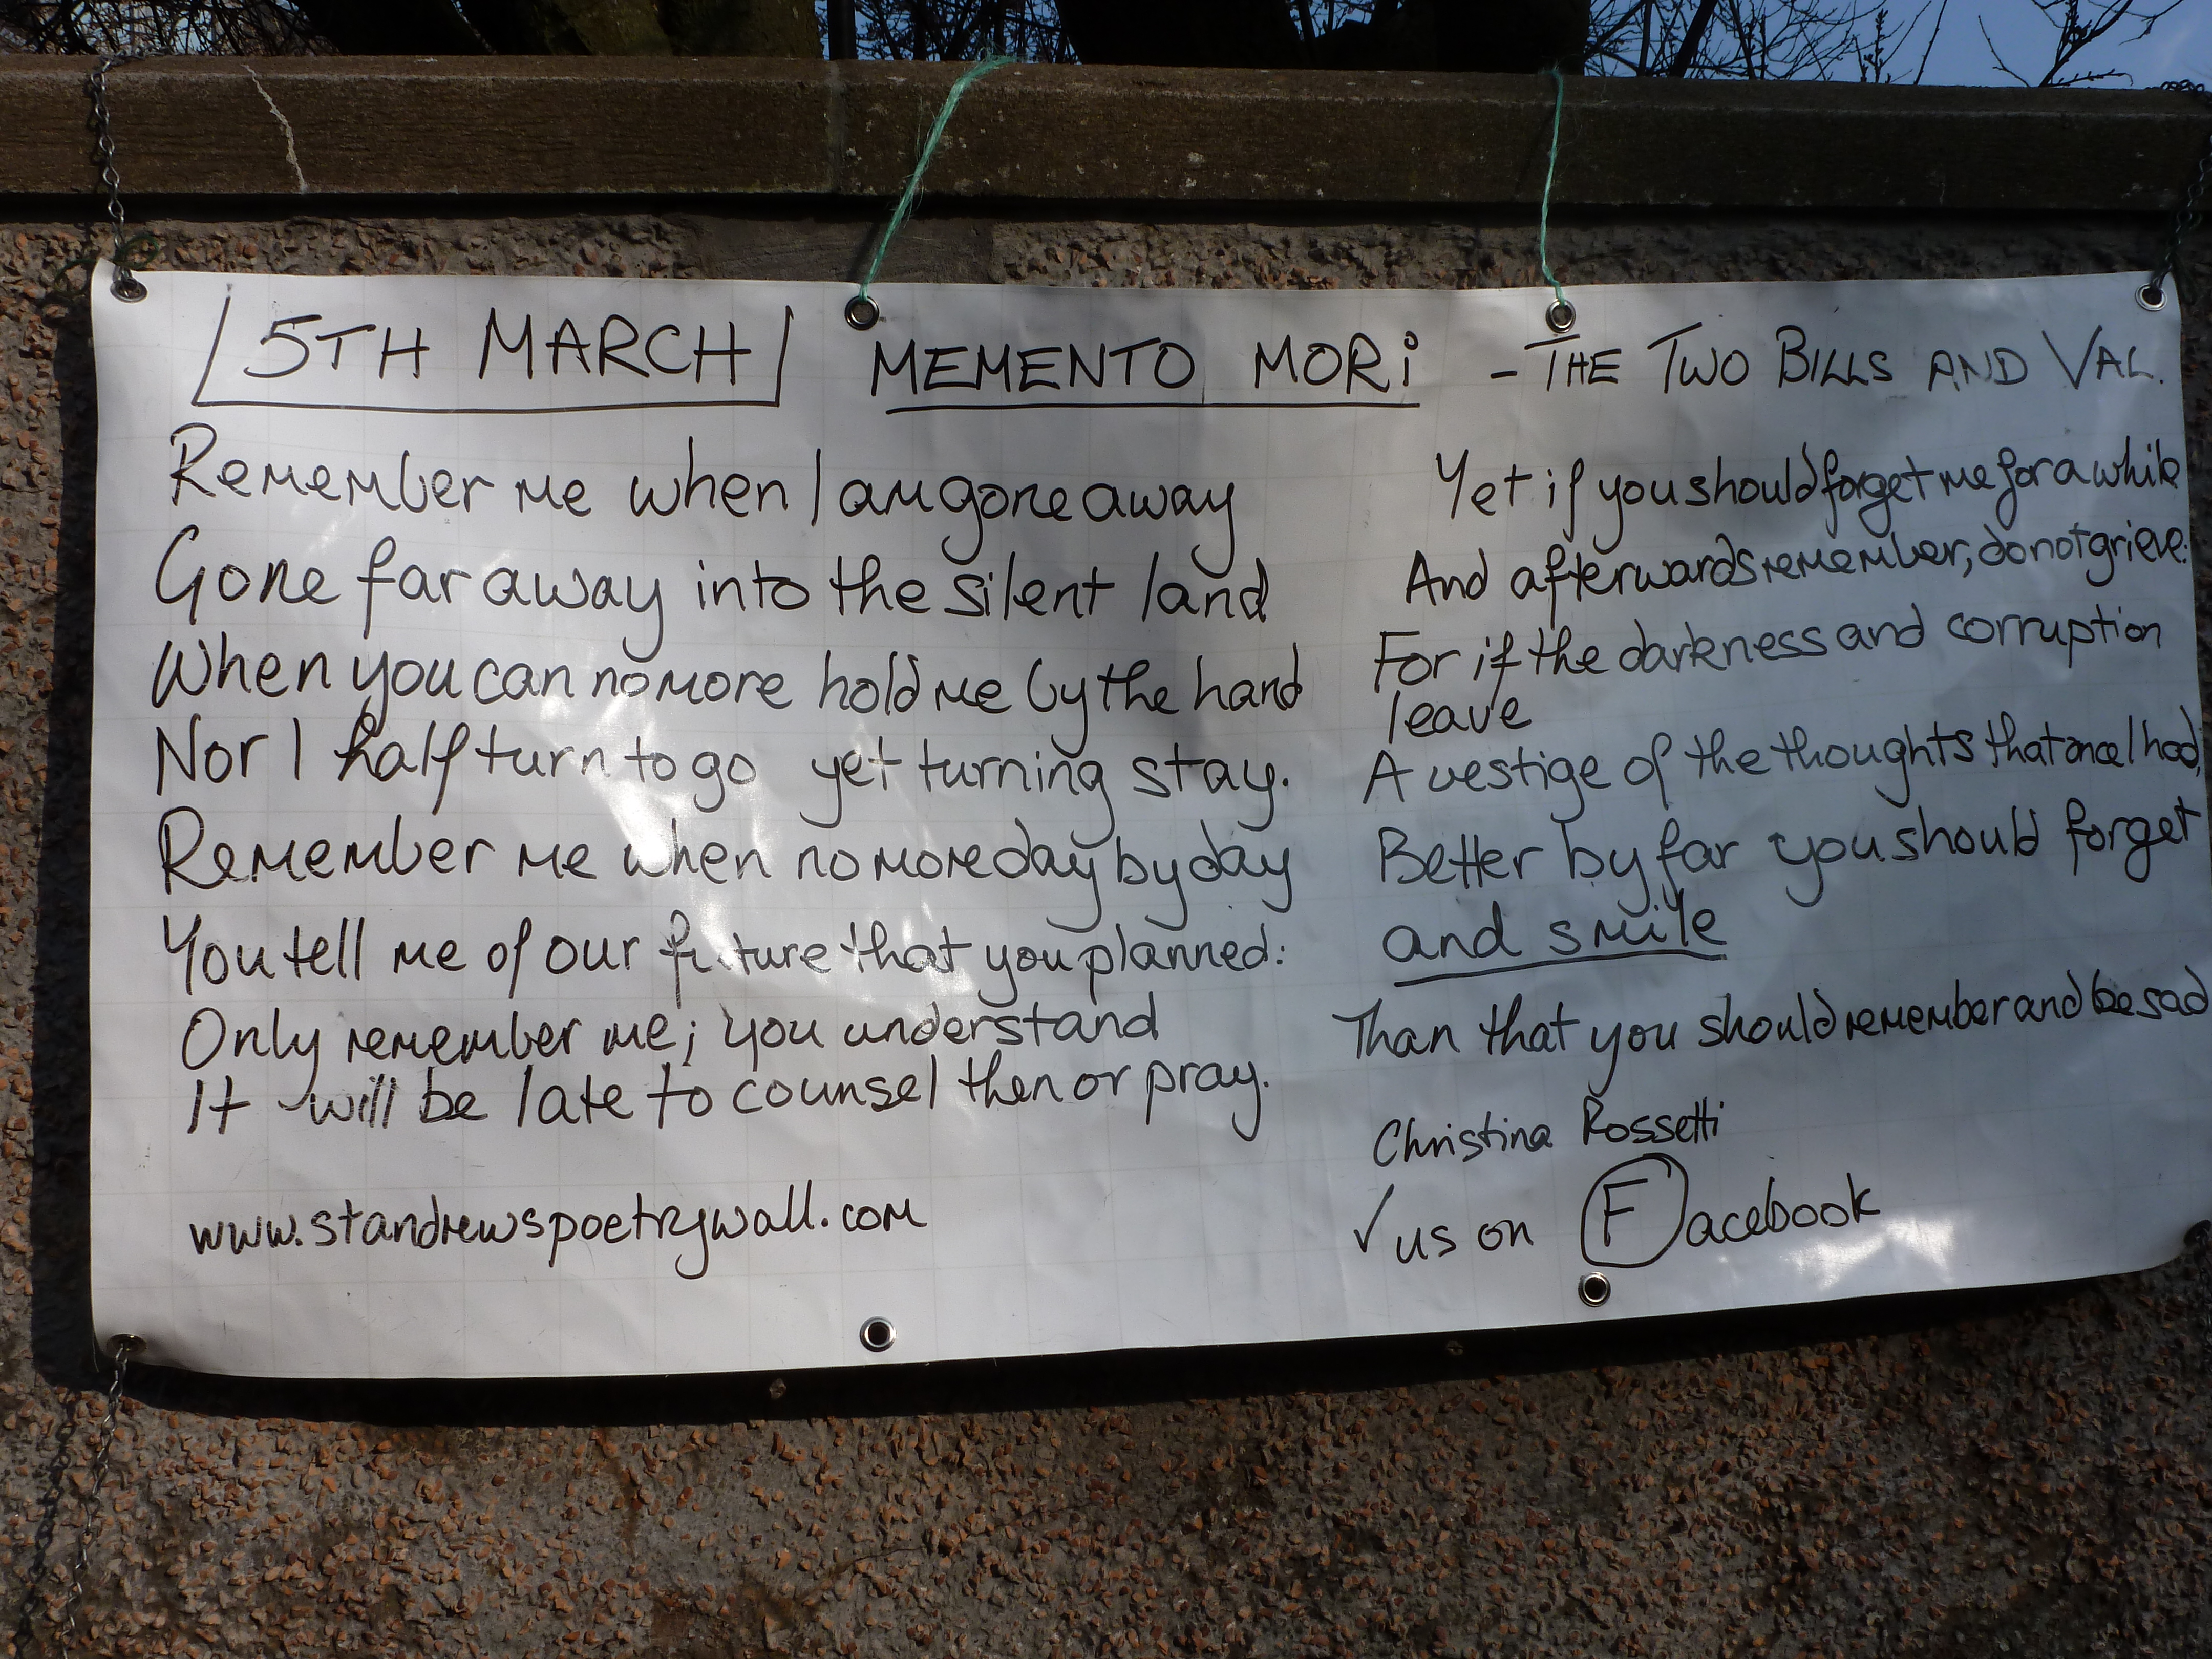 5TH MARCH MEMENTO MORi - THE TWO BILLS AND VAL.
Remember me when I am gone away
Gone far away into the silent land
When you can no more hold me by the hand
Nor I half turn to go yet turning stay.
Remember me when no more day by day
You tell me of our future that you planned:
Only remember me; you understand
It will be late to counsel then or pray.
www.standrewspoetrywall.com
Yet if you should forget me for a while
And afterwards remember, do not grieve:
For if the darkness and corruption
leave
A vestige of the thoughts that once I had,
Better by far you should forget
and smile
Than that you should remember and be sad
Christina Rossetti
✓ us on Facebook